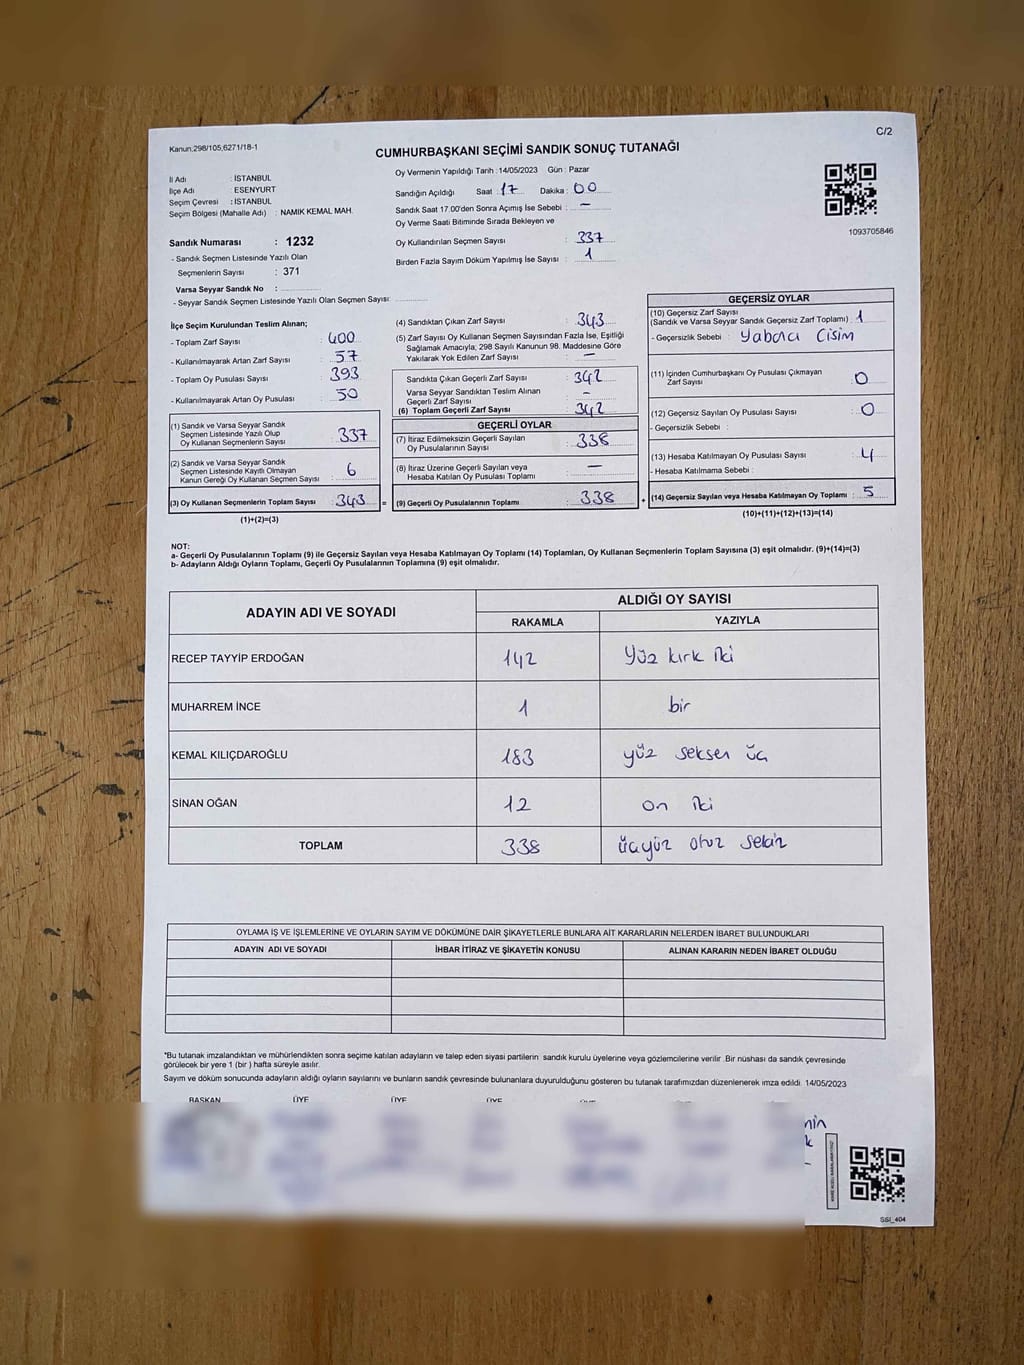 C/2
Kanun.298/105,6271/18-1
CUMHURBAŞKANI SEÇİMİ SANDIK SONUÇ TUTANAĞI
İl Adı : İSTANBUL
İlçe Adı : ESENYURT
Seçim Çevresi : İSTANBUL
Seçim Bölgesi (Mahalle Adı) : NAMIK KEMAL MAH.
Sandık Numarası : 1232
- Sandık Seçmen Listesinde Yazılı Olan
Seçmenlerin Sayısı : 371
Varsa Seyyar Sandık No :
- Seyyar Sandık Seçmen Listesinde Yazılı Olan Seçmen Sayısı:
Oy Vermenin Yapıldığı Tarih : 14/05/2023 Gün : Pazar
Sandığın Açıldığı Saat : 17 Dakika : 00
Sandık Saat 17.00'den Sonra Açımış İse Sebebi : -
Oy Verme Saati Bitiminde Sırada Bekleyen ve
Oy Kullandırılan Seçmen Sayısı : 337
Birden Fazla Sayım Döküm Yapılmış İse Sayısı : 1
1093705846
İlçe Seçim Kurulundan Teslim Alınan;
- Toplam Zarf Sayısı : 400
- Kullanılmayarak Artan Zarf Sayısı : 57
- Toplam Oy Pusulası Sayısı : 393
- Kullanılmayarak Artan Oy Pusulası : 50
(1) Sandık ve Varsa Seyyar Sandık
Seçmen Listesinde Yazılı Olup
Oy Kullanan Seçmenlerin Sayısı : 337
(2) Sandık ve Varsa Seyyar Sandık
Seçmen Listesinde Kayıtlı Olmayan
Kanun Gereği Oy Kullanan Seçmen Sayısı : 6
(3) Oy Kullanan Seçmenlerin Toplam Sayısı : 343 =
(1)+(2)=(3)
(4) Sandıktan Çıkan Zarf Sayısı : 343
(5) Zarf Sayısı Oy Kullanan Seçmen Sayısından Fazla İse, Eşitliği
Sağlamak Amacıyla; 298 Sayılı Kanunun 98. Maddesine Göre
Yakılarak Yok Edilen Zarf Sayısı : -
Sandıkta Çıkan Geçerli Zarf Sayısı : 342
Varsa Seyyar Sandıktan Teslim Alınan
Geçerli Zarf Sayısı : -
(6) Toplam Geçerli Zarf Sayısı : 342
GEÇERLİ OYLAR
(7) İtiraz Edilmeksizin Geçerli Sayılan
Oy Pusulalarının Sayısı : 338
(8) İtiraz Üzerine Geçerli Sayılan veya
Hesaba Katılan Oy Pusulası Toplamı : -
(9) Geçerli Oy Pusulalarının Toplamı : 338 +
GEÇERSİZ OYLAR
(10) Geçersiz Zarf Sayısı
(Sandık ve Varsa Seyyar Sandık Geçersiz Zarf Toplamı) : 1
- Geçersizlik Sebebi : Yabancı Cisim
(11) İçinden Cumhurbaşkanı Oy Pusulası Çıkmayan
Zarf Sayısı : 0
(12) Geçersiz Sayılan Oy Pusulası Sayısı : 0
- Geçersizlik Sebebi :
(13) Hesaba Katılmayan Oy Pusulası Sayısı : 4
- Hesaba Katılmama Sebebi :
(14) Geçersiz Sayılan veya Hesaba Katılmayan Oy Toplamı : 5
(10)+(11)+(12)+(13)=(14)
NOT:
a- Geçerli Oy Pusulalarının Toplamı (9) ile Geçersiz Sayılan veya Hesaba Katılmayan Oy Toplamı (14) Toplamları, Oy Kullanan Seçmenlerin Toplam Sayısına (3) eşit olmalıdır. (9)+(14)=(3)
b- Adayların Aldığı Oyların Toplamı, Geçerli Oy Pusulalarının Toplamına (9) eşit olmalıdır.
ADAYIN ADI VE SOYADI ALDIĞI OY SAYISI
RAKAMLA YAZIYLA
RECEP TAYYİP ERDOĞAN 142 Yüz kırk iki
MUHARREM İNCE 1 bir
KEMAL KILIÇDAROĞLU 183 yüz seksen üç
SİNAN OĞAN 12 on iki
TOPLAM 338 üçyüz otuz sekiz
OYLAMA İŞ VE İŞLEMLERİNE VE OYLARIN SAYIM VE DÖKÜMÜNE DAİR ŞİKAYETLERLE BUNLARA AİT KARARLARIN NELERDEN İBARET BULUNDUKLARI
ADAYIN ADI VE SOYADI İHBAR İTİRAZ VE ŞİKAYETİN KONUSU ALINAN KARARIN NEDEN İBARET OLDUĞU
*Bu tutanak imzalandıktan ve mühürlendikten sonra seçime katılan adayların ve talep eden siyasi partilerin sandık kurulu üyelerine veya gözlemcilerine verilir. Bir nüshası da sandık çevresinde
görülecek bir yere 1 (bir ) hafta süreyle asılır.
Sayım ve döküm sonucunda adayların aldığı oyların sayılarını ve bunların sandık çevresinde bulunanlara duyurulduğunu gösteren bu tutanak tarafımızdan düzenlenerek imza edildi. 14/05/2023
BAŞKAN ÜYE ÜYE ÜYE ÜYE
SSI_404